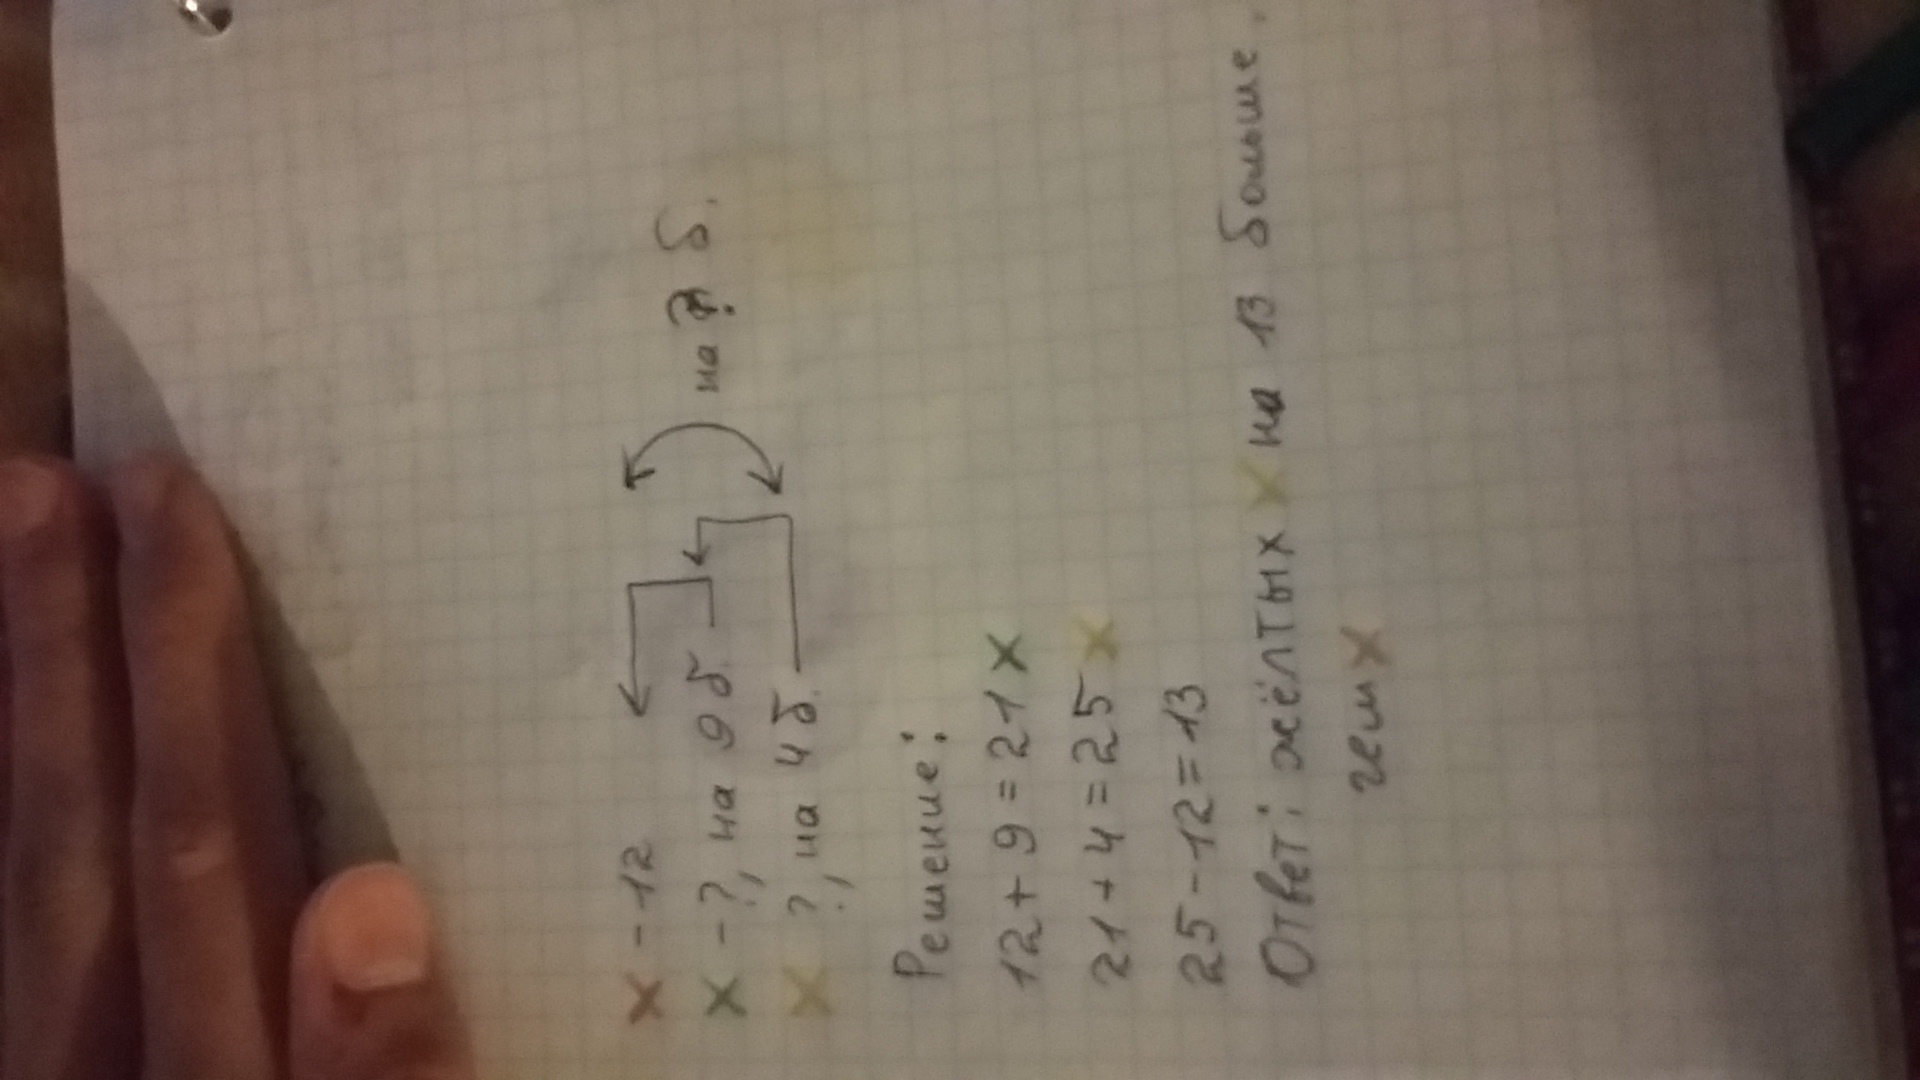 х - 12
х - ?, на 9 б.
х ?, на 4 б.
на ? б.
Решение:
12 + 9 = 21 х
21 + 4 = 25 х
25 - 12 = 13
Ответ: жёлтых х на 13 больше.
чем х